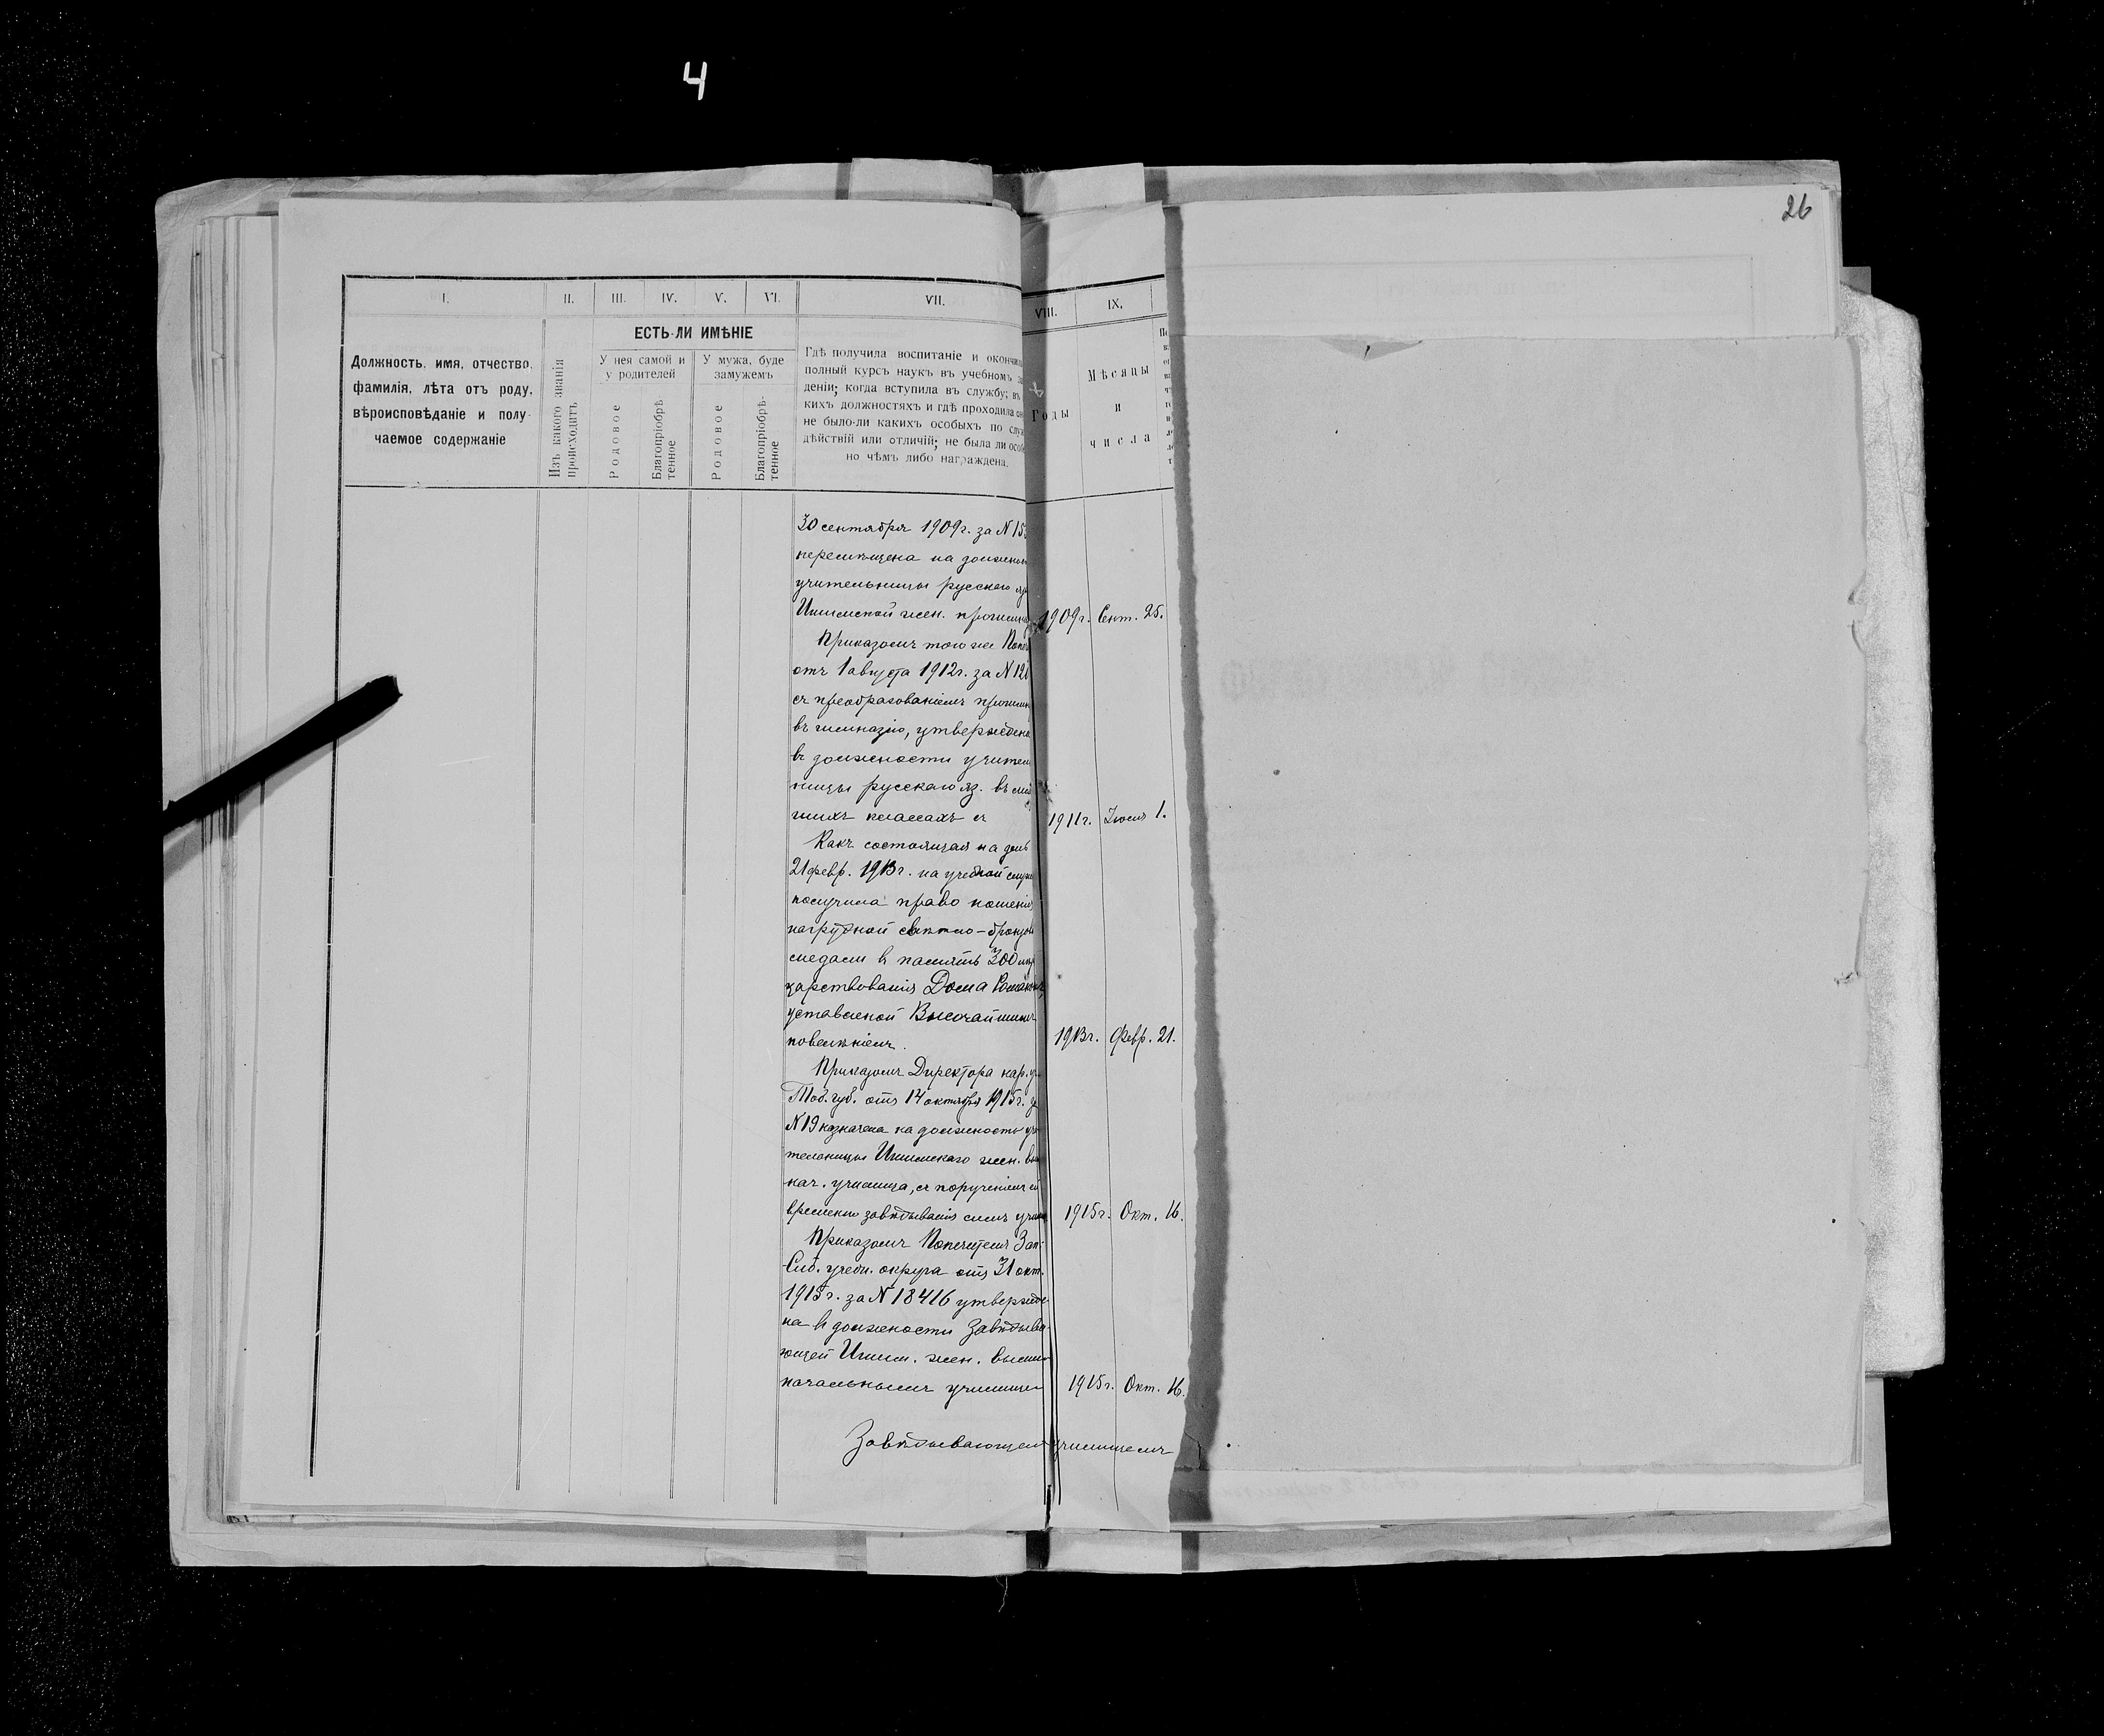 4
26
I. II. III. IV. V. VI. VII. VIII. IX.
ЕСТЬ-ЛИ ИМѢНІЕ
Должность, имя, отчество,
фамилія, лѣта отъ роду,
вѣроисповѣданіе и полу-
чаемое содержаніе
Изъ какого званія
происходитъ
У нея самой и
у родителей
У мужа, буде
замужемъ
Родовое
Благопріобрѣ-
тенное
Родовое
Благопріобрѣ-
тенное
Гдѣ получила воспитаніе и окончила
полный курсъ наукъ въ учебномъ за
деніи; когда вступила въ службу; въ
кихъ должностяхъ и гдѣ проходила он
не было-ли какихъ особыхъ по служ
дѣйствій или отличій; не была ли особ
но чѣмъ либо награждена.
Годы
Мѣсяцы
и
числа
30 сентября 1909г. за N 15
перемѣщена на должнос
учительницы русскаго яз
Ишимской жен. прогимна 1909г. Сент. 25.
Приказомъ того же Попеч
отъ 1 августа 1912г. за N 121
съ преобразованіемъ прогимн
въ гимназію, утверждена
въ должности учитель
ницы русскаго яз. въ млад
шихъ классахъ съ 1911г. Іюля 1.
Какъ состоящая на день
21 февр. 1913г. на учебной служ
получила право ношенія
нагрудной свѣтло-бронзов
медали въ память 300 лѣт
царствованія Дома Романовыхъ,
уставленной Высочайшимъ
повелѣніемъ. 1913г. Февр. 21.
Приказомъ Директора нар. уч
Тоб. губ. отъ 14 октября 1915г. за
N 19 назначена на должность учи
тельницы Ишимскаго жен. выс
нач. училища, съ порученіемъ ей
временно завѣдыванія симъ учил 1915г. Окт. 16.
Приказомъ Попечителя Зап.-
Сиб. учебн. округа отъ 31 окт.
1915г. за N 18416 утвержде-
на въ должности Завѣдыва-
ющей Ишим. жен. высш.
начальнымъ училище 1915г. Окт. 16.
Завѣдывающей училищемъ